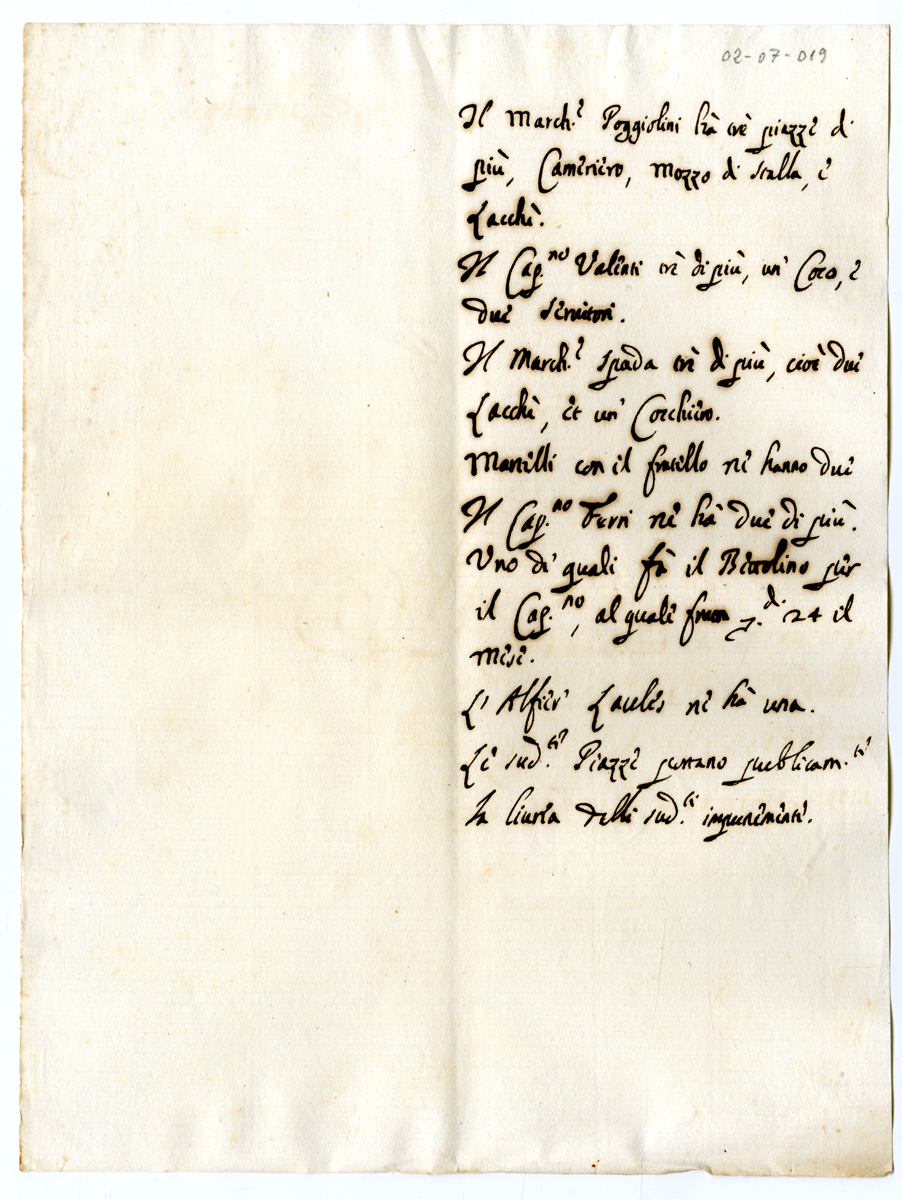 02-07-019
Il March.e Poggiolini hà trè piazze di
più, Cameriero, Mozzo di stalla, e
Lacchè.
Il Cap.no Valenti trè di più, un' Coco, e
due servitori.
Il March.e Spada trè di più, cioè due
Lacchè, et un' Cocchiero.
Martelli con il fratello ne hanno due
Il Cap.no Ferri ne hà due di più.
Uno de' quali fà il Bettolino per
il Cap.no, al quale 24 il
mese.
L' Alfier ne hà una.
Le sud.te Piazze portano publicam.te
la livrea delli sud.ti impunemente.